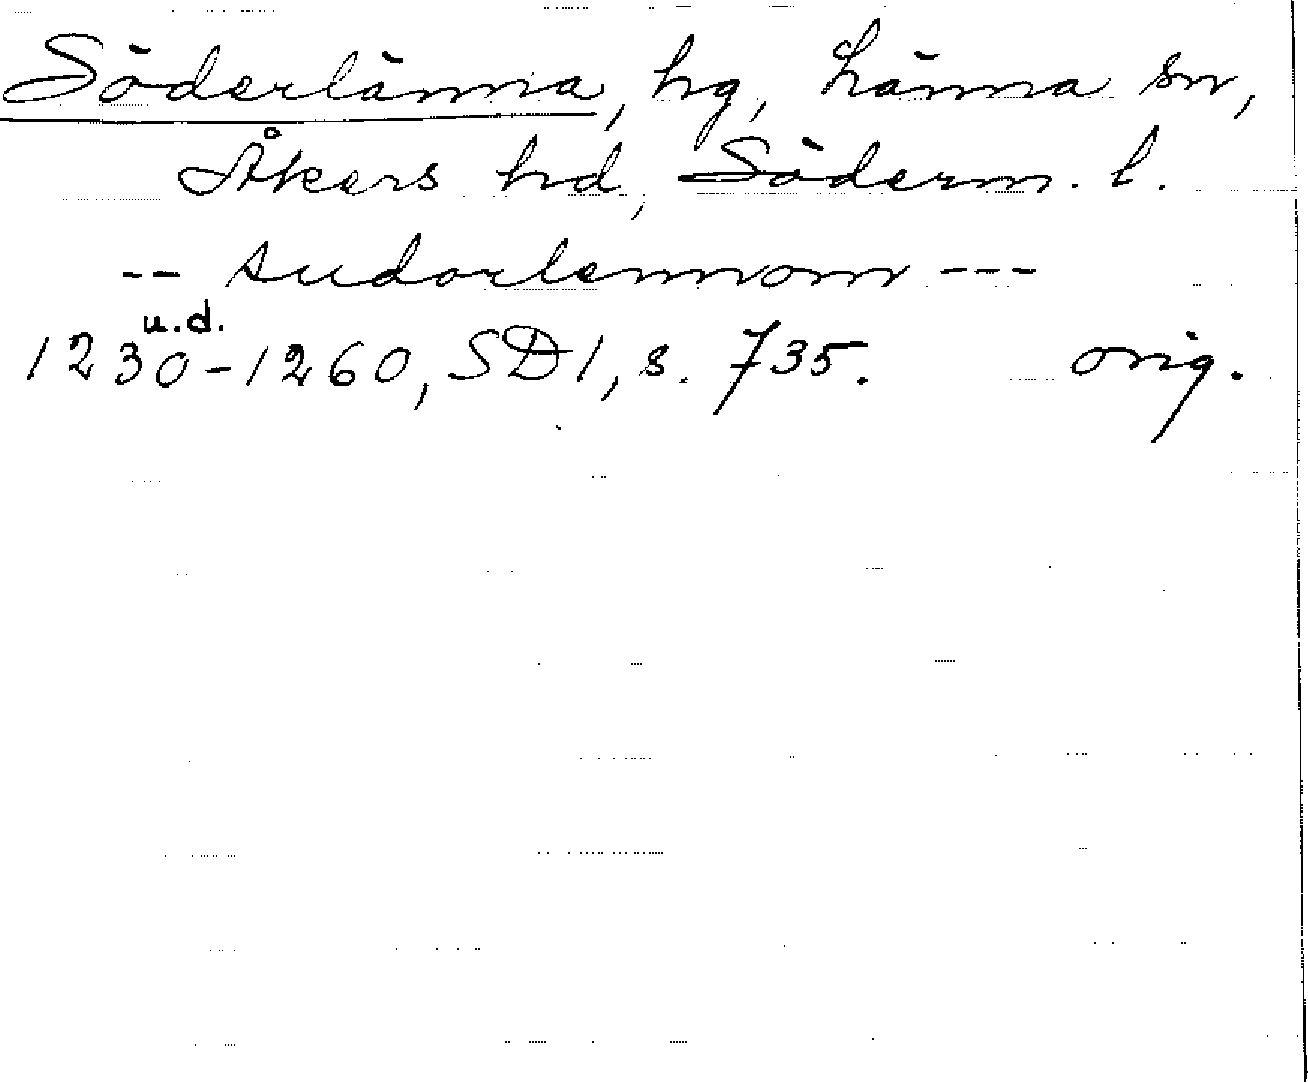 Söderlänna, hg, Länna sn,
Åkers hd, Söderm. l.
-- sudorlennom ---
u.d.
1230-1260, SD1, s. 735. orig.